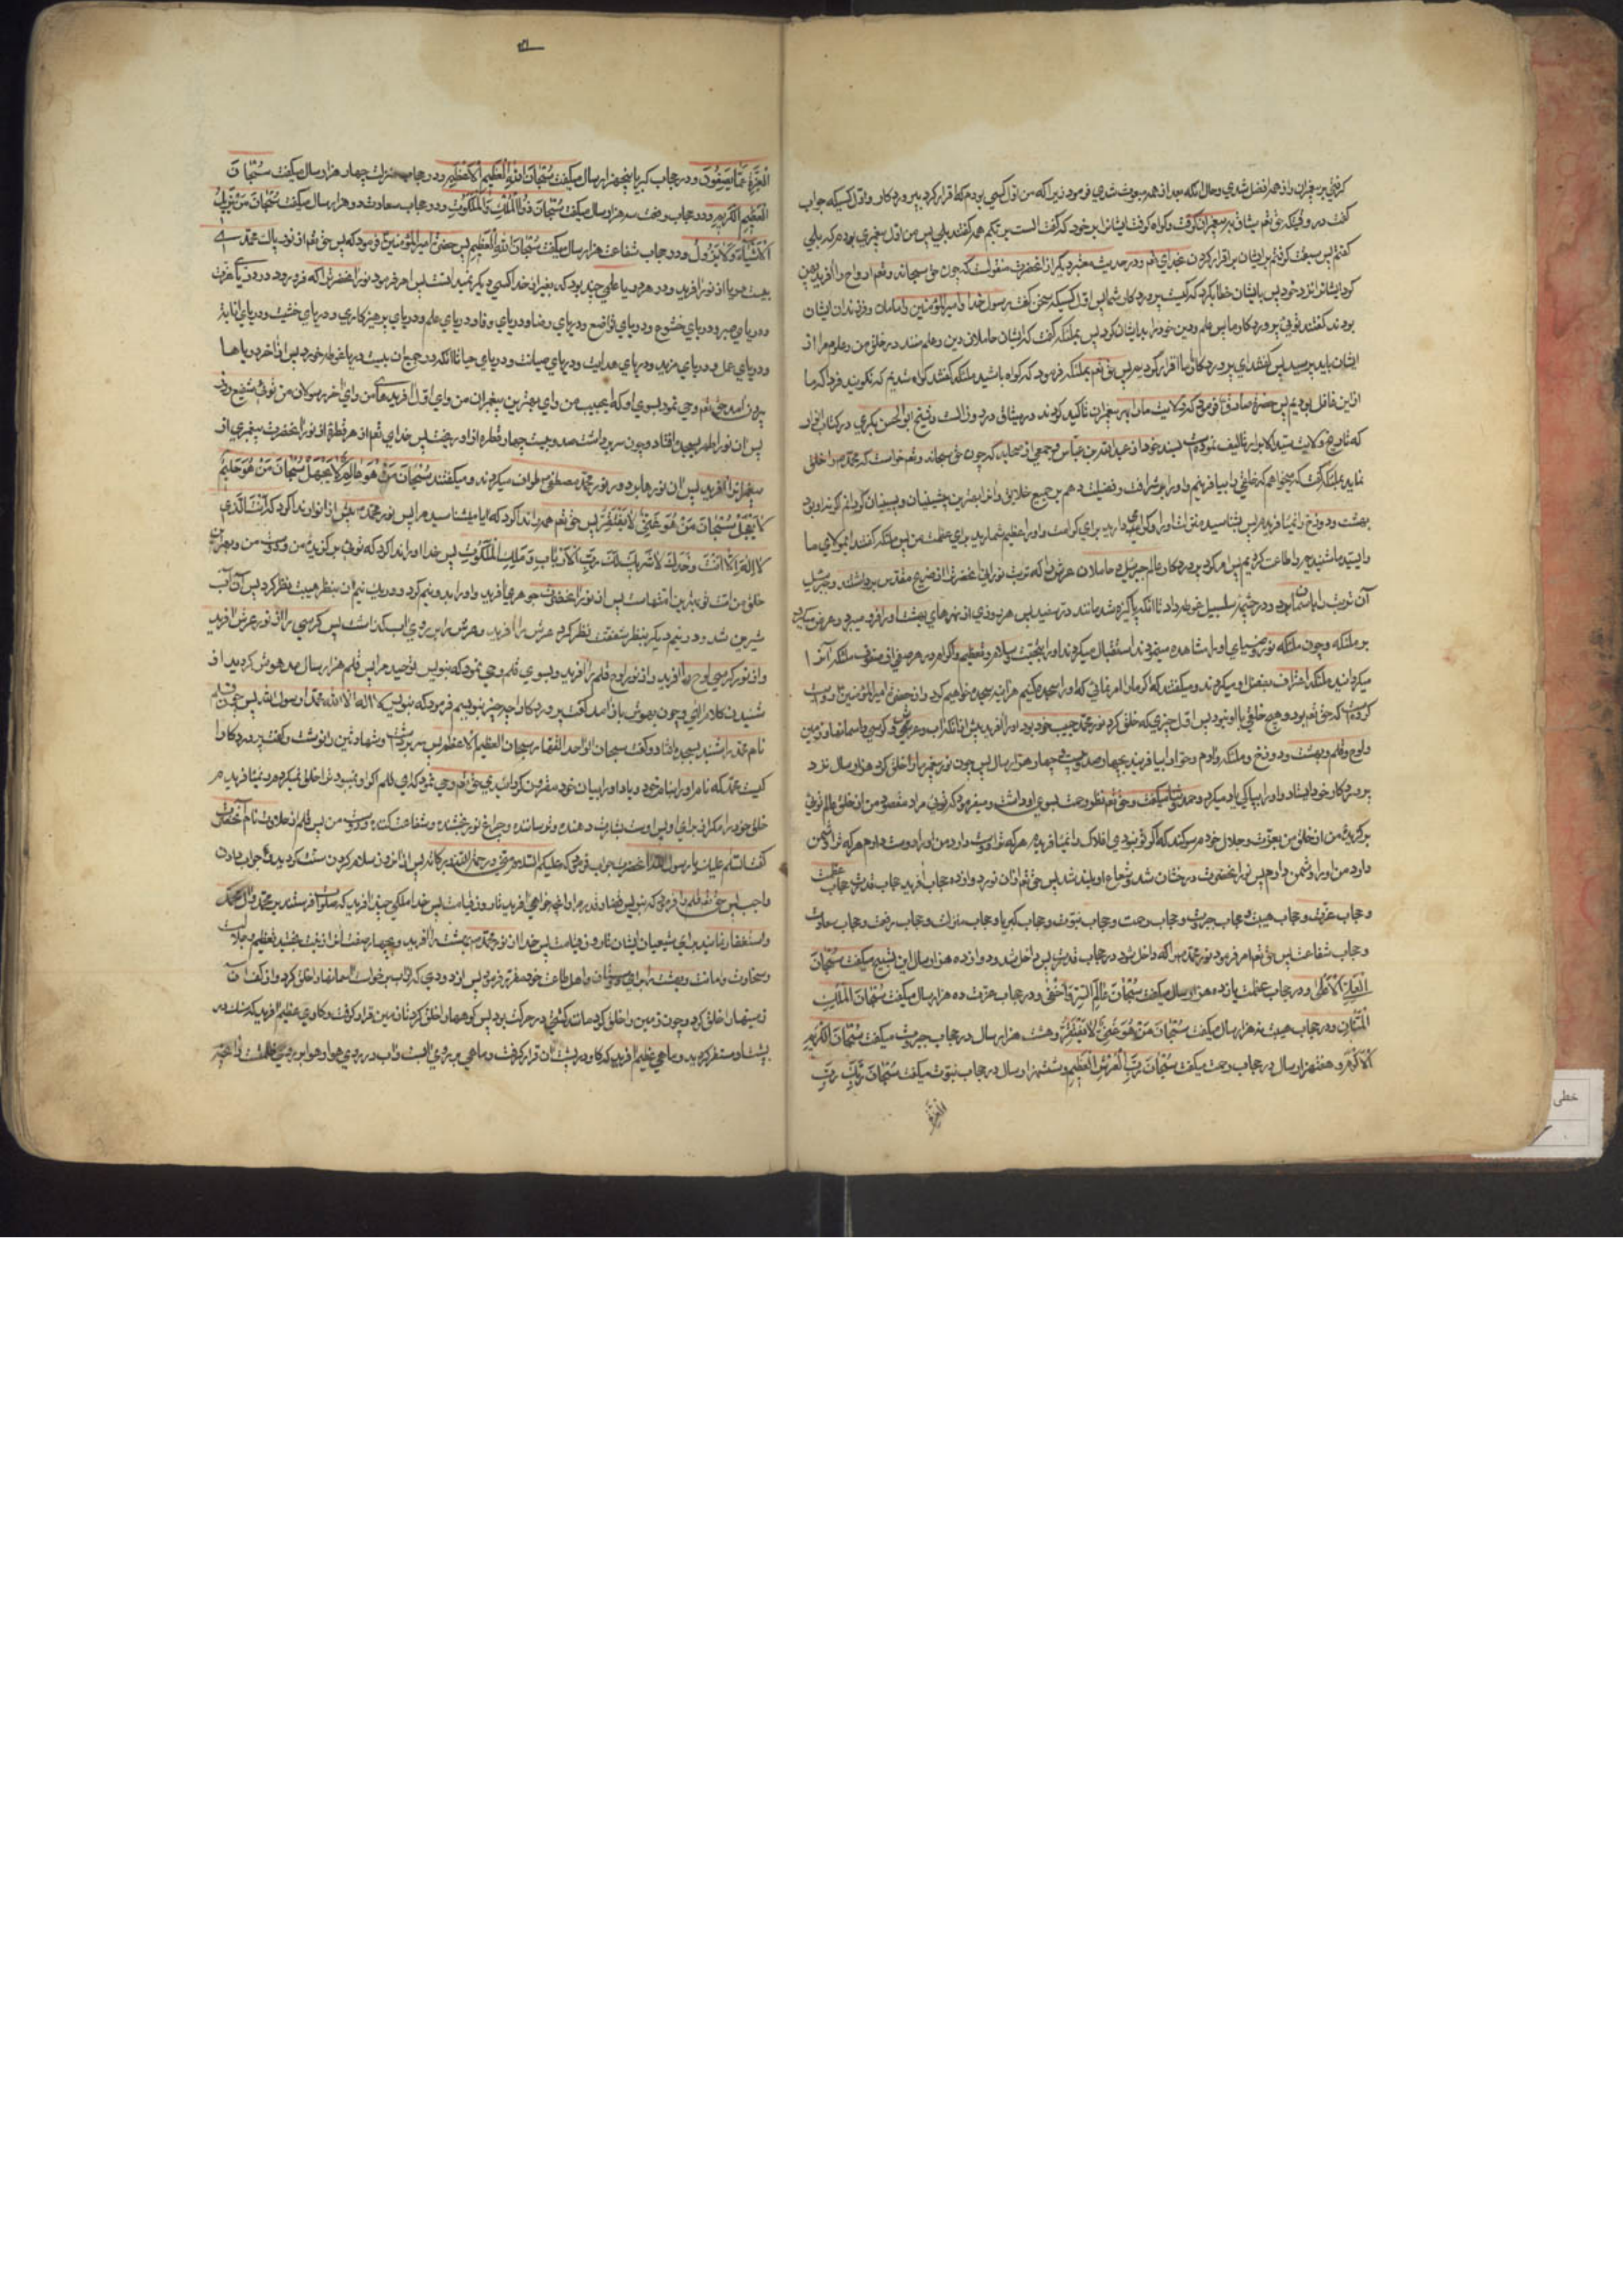 کردی بر پیغمبران و از همه افضل شدی و حال آنکه بعد از همه مبعوث شدی فرمود زیرا که من اول کسی بودم که اقرار کرد به پروردگار و اول کسیکه جواب
گفت در وقتیکه حق تعم میثاق پیغمبران گرفت و گواه گرفت ایشانرا بر خود که گفت الست بربکم همه گفتند بلی پس من اول پیغمبری بودم که بلی
گفتم پس سبقت گرفتم بر ایشان باقرار کردن بخدای تعم و در حدیث معتبر دیگر از انحضرت منقولست که چون حق سبحانه و تعم ارواح را آفرید پهن
کرد ایشانرا نزد خود پس با ایشان خطاب کرد که کیست پروردگار شما پس اول کسیکه سخن گفت رسول خدا و امیرالمؤمنین و امامان و فرزندان ایشان
بودند گفتند توئی پروردگار ما پس علم و دین خود را بدایشان کرد پس بملئکه گفت که ایشان حاملان دین و علم منند در خلق من و علوم مرا از
ایشان باید پرسید پس گفت ای پروردگار ما اقرار کردیم پس حق تعم بملئکه فرمود که گواه باشید ملئکه گفتند گواه شدیم که نگویند فردا که ما
ازین غافل بودیم پس حضرة صادق فرمود که ولایت ما را بر پیغمبران تاکید کردند در میثاق در روز الست و شیخ ابوالحسن بکری در کتاب انوار
که تاریخ ولادت سید الابرار تالیف نموده بسند خود از عبدالله بن عباس و جمعی از صحابه که چون حق سبحانه و تعم خواست که محمد را خلق
نماید بملئکه گفت که میخواهم که خلقی را بیافرینم و او را شرافت و فضیلت دهم بر جمیع خلایق و او را بهترین پیشینیان و پسینیان گردانم گر نه او بودی
بهشت و دوزخ را نمیآفریدم پس بشناسید منزلت او را و گرامی دارید برای کرامت و او را عظیم شمارید برای عظمت من پس ملئکه گفتند ای مولای ما
آن تربت را باسمان برد و در چشمه سلسبیل غوطه داد تا انکه پاکیزه شد مانند در سفید پس هر روزی از نهرهای بهشت او را فرو میبرد و عرض میکرد
بر ملئکه و چون ملئکه نور و ضیای او را مشاهده مینمودند استقبال میکردند او را بتحیت و سلام و تعظیم و اکرام و در هر صفی از صفوف ملئکه انرا
میگردانید ملئکه اعتراف بفضل او میکردند و میگفتند که اگر ما را امر فرمائی که او را سجده کنیم هر اینه سجده خواهیم کرد و از حضرة امیرالمؤمنین
کرده که حق تعم بود و هیچ خلقی با او نبود پس اول چیزی که خلق کرد نور محمد حبیب خود بود او را آفرید پیش از انکه اب و عرش و کرسی و اسمانها و زمین
و لوح و قلم و بهشت و دوزخ و ملئکه و آدم و حوا را بیافریند بچهار صد و بیست و چهار هزار سال پس چون نور پیغمبر را خلق کرد هزار سال نزد
پروردگار خود ایستاد و او را بپاکی یاد میکرد و حمد و ثنا میگفت و حق تعم نظر رحمت بسوی او داشت و میفرمود که توئی مراد مقصود من از خلق عالم توئی
برگزیده من از خلق من بعزت و جلال خودم سوگند که اگر تو نبودی افلاک را نمیآفریدم هر که ترا دوست دارد من او را دوست دارم هر که ترا دشمن
دارد من او را دشمن دارم پس نور انحضرت درخشان شد و شعاع او بلند شد پس حق تعم از ان نور دوازده حجاب آفرید حجاب قدرت حجاب عظمت
و حجاب عزت و حجاب هیبت و حجاب جبروت و حجاب رحمت و حجاب نبوت و حجاب کبریا و حجاب منزلت و حجاب رفعت و حجاب سعادت
و حجاب شفاعت پس حق تعم امر فرمود نور محمد را که داخل شود در حجاب قدرت پس داخل شد و دوازده هزار سال این تسبیح میگفت سُبْحَانَ
الْعَلِيِّ الْأَعْلَى و در حجاب عظمت یازده هزار سال میگفت سُبْحَانَ عَالِمِ السِّرِّ وَ أَخْفَى و در حجاب عزت ده هزار سال میگفت سُبْحَانَ الْمَلِكِ
الْمَنَّانِ و در حجاب هیبت نه هزار سال میگفت سُبْحَانَ مَنْ هُوَ غَنِيٌّ لَا يَفْتَقِرُ و هشت هزار سال در حجاب جبروت میگفت سُبْحَانَ الْكَرِيمِ
الْأَكْرَمِ و هفت هزار سال در حجاب رحمت میگفت سُبْحَانَ رَبِّ الْعَرْشِ الْعَظِيمِ و ششهزار سال در حجاب نبوت میگفت سُبْحَانَ رَبِّكَ رَبِّ
العزة
الْعِزَّةِ عَمَّا يَصِفُونَ و در حجاب کبریا پنجهزار سال میگفت سُبْحَانَ اللَّهِ الْعَظِيمِ الْأَعْظَمِ و در حجاب منزلت چهار هزار سال میگفت سُبْحَانَ
الْعَظِيمِ الْكَرِيمِ و در حجاب رفعت سه هزار سال میگفت سُبْحَانَ ذِي الْمُلْكِ وَ الْمَلَكُوتِ و در حجاب سعادت دو هزار سال میگفت سُبْحَانَ مَنْ يُزِيلُ
الْأَشْيَاءَ وَ لَا يَزُولُ و در حجاب شفاعت هزار سال میگفت سُبْحَانَ اللَّهِ الْعَظِيمِ پس حضرت امیرالمؤمنین فرمود که پس حق تعم از نور پاک محمدی
بیست دریا از نور آفرید و در هر دریا علمی چند بود که بغیر از خدا کسی دیگر نمیدانست پس امر فرمود نور انحضرت را که فرو رود در دریای عزت
و دریای صبر و دریای خشوع و دریای تواضع و دریای رضا و دریای وفا و دریای علم و دریای پرهیزکاری و دریای خشیت و دریای انابة
و دریای عمل و دریای مزید و دریای هدایت و دریای صیانت و دریای حیا تا انکه در جمیع ان بیست دریا غوطه خورد پس از اخر دریاها
بیرون آمد حق تعم وحی نمود بسوی او که ای حبیب من و ای بهترین پیغمبران من و ای اول آفریدهای من و ای آخر رسولان من توئی شفیع روز
پس ان نور اطهر بسجده افتاد و چون سر برداشت صد و بیست چهار قطره از او ریخت پس خدای تعم از هر قطره از نور انحضرت پیغمبری از
پیغمبرانرا آفرید پس ان نورها بر دور نور محمد مصطفی طواف میکردند و میگفتند سُبْحَانَ مَنْ هُوَ عَالِمٌ لَا يَجْهَلُ سُبْحَانَ مَنْ هُوَ حَلِيمٌ
لَا يَعْجَلُ سُبْحَانَ مَنْ هُوَ غَنِيٌّ لَا يَفْتَقِرُ پس حق تعم همه را ندا کرد که ایا میشناسید مرا پس نور محمد پیش از انوار ندا کرد که أَنْتَ الَّذِي
لَا إِلَهَ إِلَّا أَنْتَ وَحْدَكَ لَا شَرِيكَ لَكَ رَبُّ الْأَرْبَابِ وَ مَلِكُ الْمَلَكُوتِ پس خدا او را ندا کرد که توئی برگزیده من و دوست من و بهترین
خلق من امت تو بهترین امتهاست پس از نور انحضرت جوهری آفرید و او را بدو نیم کرد و در یک نیم ان بنظر هیبت نظر کرد پس آن آب
شیرین شد و در نیم دیگر بنظر شفقت نظر کرد عرش را آفرید و عرش را بر روی اب گذاشت پس کرسی را از نور عرش آفرید
و از نور کرسی لوح را آفرید و از نور لوح قلم را آفرید و بسوی قلم وحی نمود که بنویس توحید مرا پس قلم هزار سال مدهوش گردید از
شنیدن کلام الهی و چون بهوش باز آمد گفت پروردگارا چه چیز بنویسم فرمود که بنویس لا اله الا الله محمد رسول الله پس چون قلم
نام محمد را شنید بسجده افتاد و گفت سبحان الواحد القهار سبحان العظیم الاعظم پس سر برداشت و شهادتین را نوشت و گفت پروردگارا
کیست محمد که نام او را بنام خود و یاد او را بیاد خود مقرون گردانیدی حق تعم وحی نمود که ای قلم اگر او نمیبود ترا خلق نمیکردم و نمیآفریدم
خلق خود را مگر از برای او پس اوست بشارت دهنده و ترساننده و چراغ نور بخشنده و شفاعت کننده و دوست من پس قلم از حلاوت نام انحضرت
گفت السلام علیک یا رسول الله انحضرت جواب فرمود که علیکم السلام منی و رحمة الله و برکاته پس از انروز سلام کردن سنت گردید و جواب دادن
واجب پس حق تعم قلم را فرمود که بنویس قضا و قدر مرا و انچه خواهم آفرید تا روز قیامت پس خدا ملکی چند آفرید که صلوات فرستند بر محمد و آل محمد
و استغفار نمایند برای شیعیان ایشان تا روز قیامت پس خدا از نور محمد بهشت را آفرید و بچهار صفت انرا زینت بخشید تعظیم و جلالت
و سخاوت و امانت و بهشت را برای دوستان و اهل طاعت خود مقرر فرمود پس از دودی که از اب برخواست اسمانها را خلق کرد و از کف آن
زمینها را خلق کرد و چون زمین را خلق کرد مانند کشتی در حرکت بود پس کوهها را خلق کرد تا زمین قرار گرفت و گاوی عظیم آفرید که سنک در
پشت او مستقر گردید و ماهی عظیم آفرید که گاو در پشت ان قرار گرفت و ماهی بر روی ابست و اب در روی هوا و هوا بر روی ظلمت و انچه